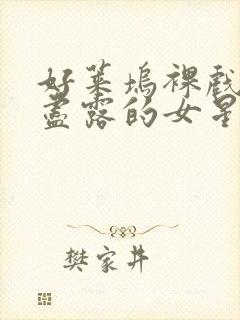 好莱坞裸戏
尽露的女星
樊家井